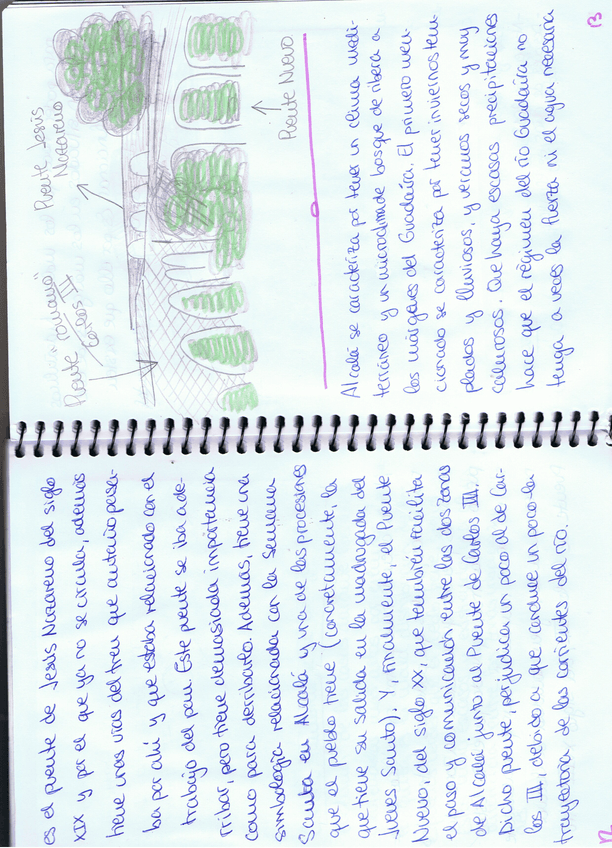 es el puente de Jesús Nazareno del siglo
XIX y por el que ya no se circula, además
tiene unas vías del tren que antaño pasa-
ba por ahí y que estaba relacionado con el
trabajo del pan. Este puente se iba a de-
rribar, pero tiene demasiada importancia
como para derribarlo. Además, tiene una
simbología relacionada con la Semana
Santa en Alcalá y una de las procesiones
que el pueblo tiene (concretamente, la
que tiene su salida en la madrugada del
Jueves Santo). Y, finalmente, el Puente
Nuevo, del siglo XX, que también facilita
el paso y comunicación entre las dos zonas
de Alcalá junto al Puente de Carlos III.
Dicho puente, perjudica un poco al de Car-
los III, debido a que conduce un poco la
trayectoria de las corrientes del río.
12
Puente "romano"
Carlos III
Puente Jesús
Nazareno
Puente Nuevo
Alcalá se caracteriza por tener un clima medi-
terráneo y un microclima de bosque de ribera a
los márgenes del Guadaíra. El primero men-
cionado se caracteriza por tener inviernos tem
plados y lluviosos, y veranos secos y muy
calurosos. Que haya escasas precipitaciones
hace que el régimen del río Guadaíra no
tenga a veces la fuerza ni el agua necesaria
13